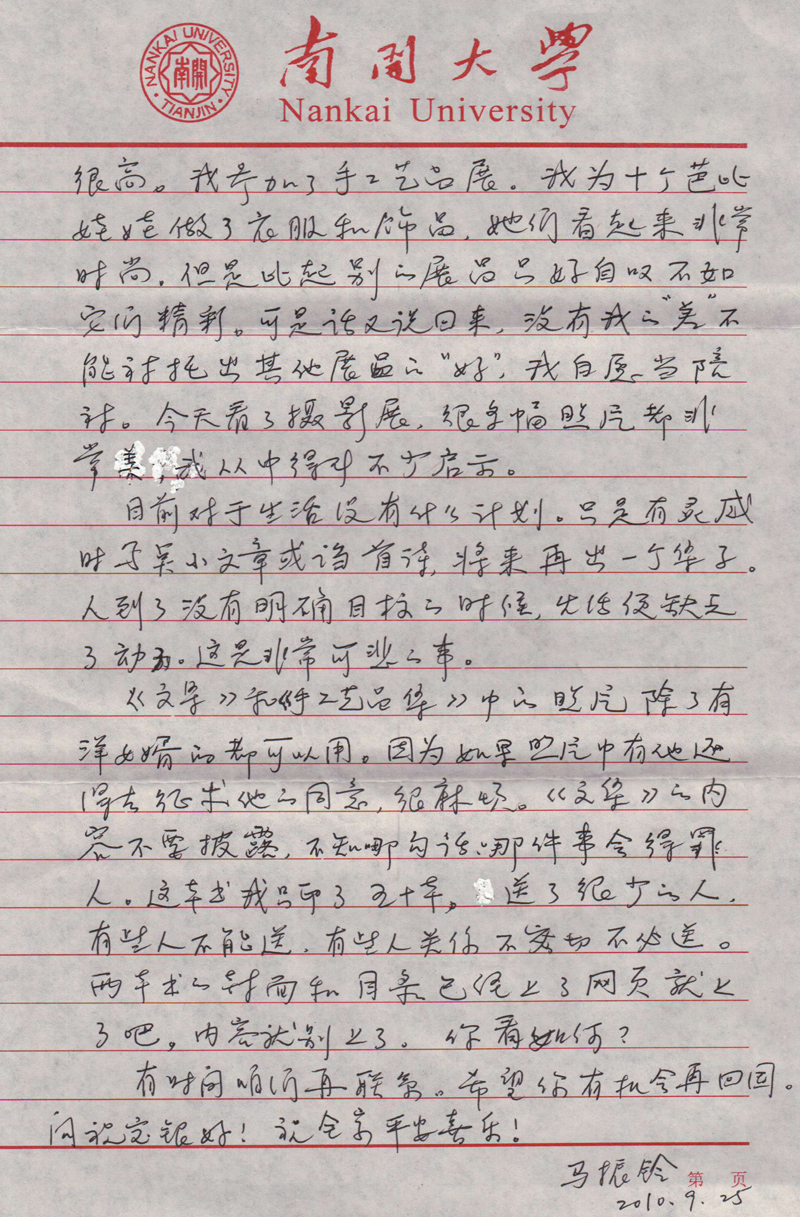 NANKAI UNIVERSITY
南開
TIANJIN
南开大学
Nankai University
很高。我参加了手工艺品展。我为十个芭比
娃娃做了衣服和饰品，她们看起来非常
时尚。但是比起别的展品只好自叹不如
它们精彩。可是话又说回来，没有我的“差”不
能衬托出其他展品的“好”，我自愿当陪
衬。今天看了摄影展，很多幅照片都非
常美，我从中得到不少启示。
目前对于生活没有什么计划。只是有灵感
时写点小文章或诌首诗，将来再出一个集子。
人到了没有明确目标的时候，生活便缺乏
了动力。这是非常可悲的事。
《文集》和《手工艺品集》中的照片除了有
洋女婿的都可以用。因为如果照片中有他还
得去征求他的同意，很麻烦。《文集》的内
容不要披露，不知哪句话、哪件事会得罪
人。这本书我只印了五十本，送了很少的人，
有些人不能送，有些人关系不密切不必送。
两本书的封面和目录已经上了网页就上
了吧，内容就别上了。你看如何？
有时间咱们再联系。希望你有机会再回国。
问祝银好！祝全家平安喜乐！
马振铃
第 页
2010.9.25